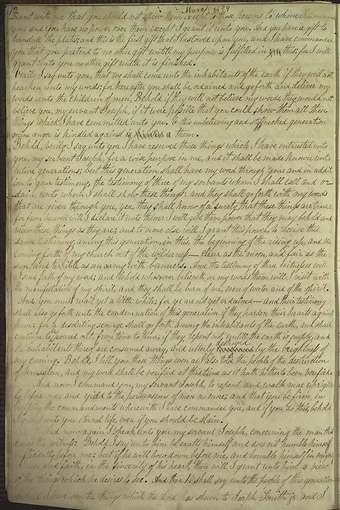 2 March 1829
that you should not show them except to those persons to whom I command
you and you have no power over them except I grant it unto you. And you have a gift to
translate the plates and this is the first gift that I bestowed upon you and I have commanded
you that you pretend to no other gift until my purpose is fulfilled in this for I will
grant unto you no other gift until it is finished.
Verily I say unto you, that wo shall come unto the inhabitants of the earth if they will not
hearken unto my words: for hereafter you shall be ordained and go forth and deliver my
words unto the children of men. Behold if they will not believe my words, they would not
believe you, my servant Joseph, if it were possible that you could show them all these
things which I have committed unto you. O this unbelieving and stiffnecked generation
mine anger is kindled against them.
Behold, verily I say unto you I have reserved those things which I have intrusted unto
you, my servant Joseph, for a wise purpose in me, and it shall be made known unto
future generations; but this generation shall have my word through you: and in addi-
tion to your testimony, the testimony of three of my servants whom I shall call and or-
dain, unto whom I shall show these things: and they shall go forth with my words
that are given through you yea, they shall know of a surety that these things are true:
for from heaven will I declare it unto them: I will give them power that they may behold and
view these things as they are; and to none else will I grant this power, to receive this
same testimony, among this generation, in this, the beginning of the rising up, and the
coming forth of my church out of the wilderness — clear as the moon and fair as the
sun, and terrible as an army with banners. And the testimony of three witnesses will
I send forth of my word; and behold, whosoever believeth on my words them will I visit with
the manifestation of my spirit, and they shall be born of me, even of water and of the spirit.
And you must wait yet a little while; for ye are not yet ordained — and their testimony
shall also go forth unto the condemnation of this generation if they harden their hearts against
them: for a desolating scourge shall go forth among the inhabitants of the earth, and shall
continue to be poured out, from time to time, if they repent not, until the earth is empty, and
the inhabitants thereof are consumed away, and utterly destroyed by the brightness of
my coming. Behold, I tell you these things even as I also told the people of the destruction
of Jerusalem, and my word shall be verified at this time as it hath hitherto been verified.
And now I command you, my servant Joseph, to repent and walk more uprightly
before me, and yield to the persuasions of men no more; and that you be firm in
keeping the commandments wherewith I have commanded you, and if you do this, behold
I grant unto you eternal life, even if you should be slain.
And now again I speak unto you, my servant Joseph, concerning the man that
desires the witness: Behold I say unto him he exalts himself and does not humble himself
sufficiently before me; but if he will bow down before me, and humble himself in mighty
prayer and faith, in the sincerity of his heart, then will I grant unto him a view
of the things which he desires to see. And then he shall say unto the people of this generation
Behold I have seen the things which the Lord has shewn to Joseph Smith jr. and I